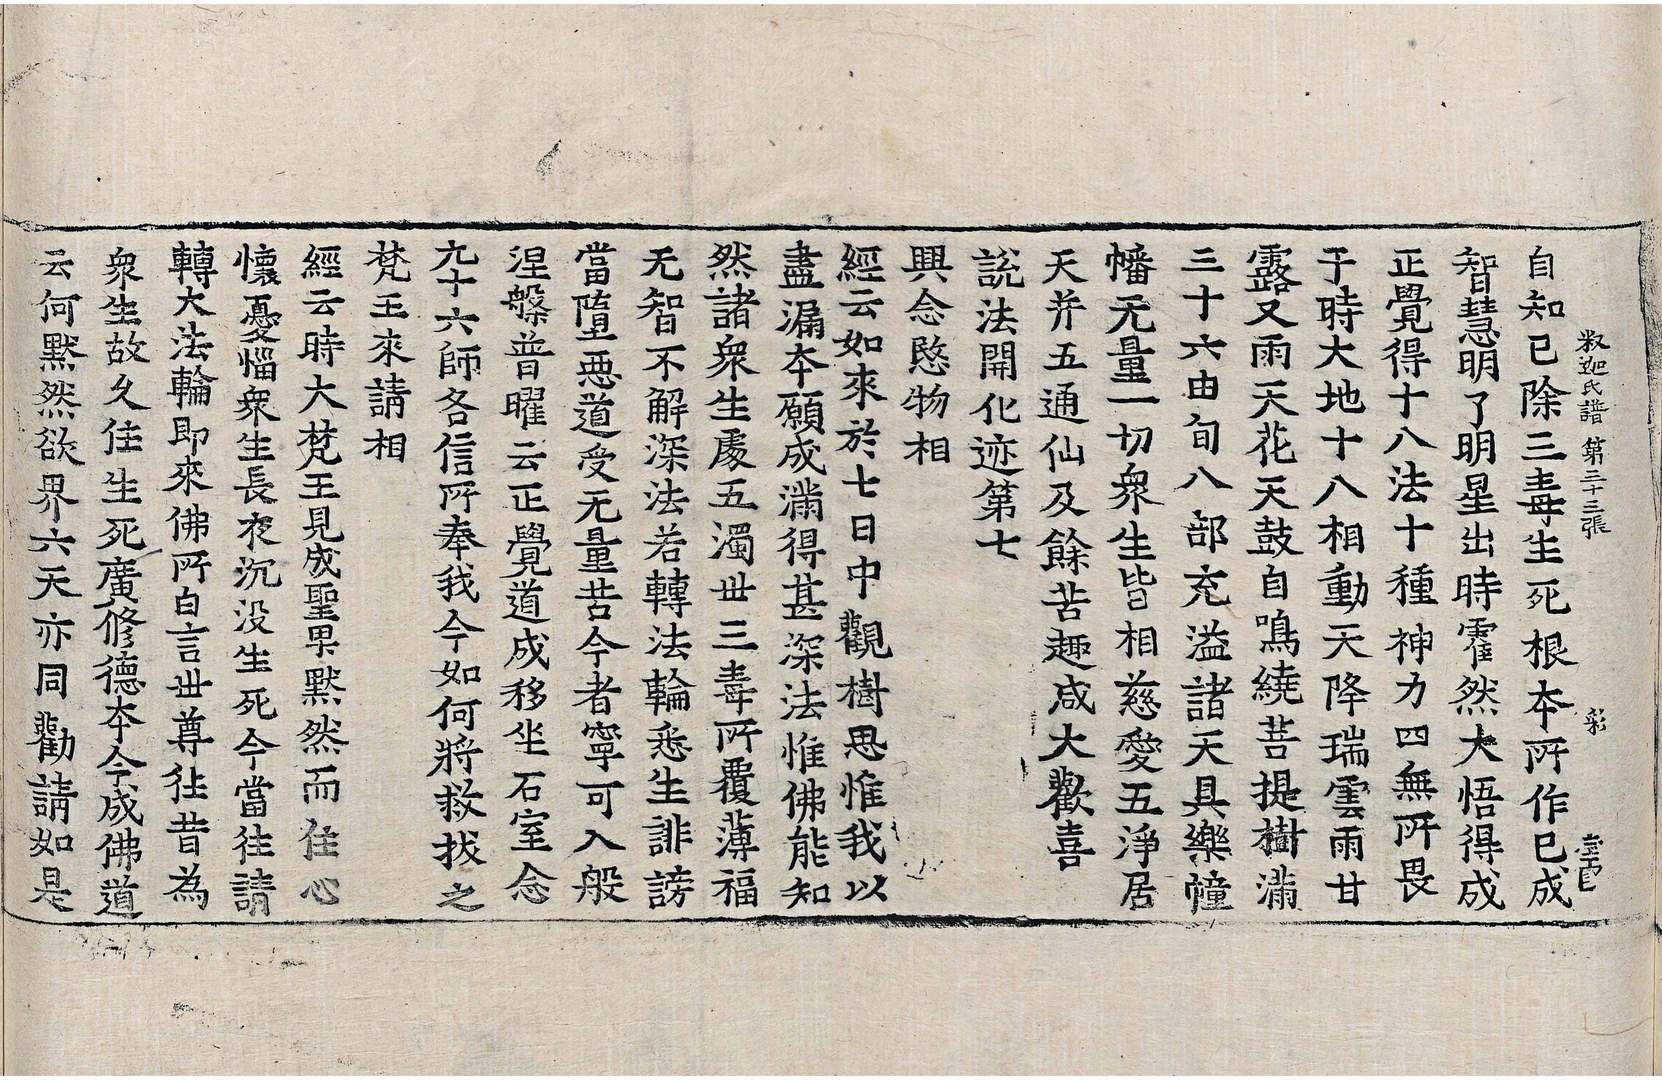 釋迦氏譜 第二十三張 彩
自知已除三毒生死根本所作已成
智慧明了明星出時霍然大悟得成
正覺得十八法十種神力四無所畏
于時大地十八相動天降瑞雲雨甘
露又雨天花天鼓自鳴繞菩提樹滿
三十六由旬八部充溢諸天具樂幢
幡无量一切衆生皆相慈愛五淨居
天并五通仙及餘苦趣咸大歡喜
說法開化迹第七
興念愍物相
經云如來於七日中觀樹思惟我以
盡漏本願成滿得甚深法惟佛能知
然諸衆生處五濁世三毒所覆薄福
无智不解深法若轉法輪悉生誹謗
當墮惡道受无量苦今者寧可入般
涅槃普曜云正覺道成移坐石室念
九十六師各信所奉我今如何將救拔之
梵王來請相
經云時大梵王見成聖果默然而住心
懷憂惱衆生長夜沉没生死今當往請
轉大法輪即來佛所白言世尊往昔為
衆生故久住生死廣修德本今成佛道
云何默然欲界六天亦同勸請如是